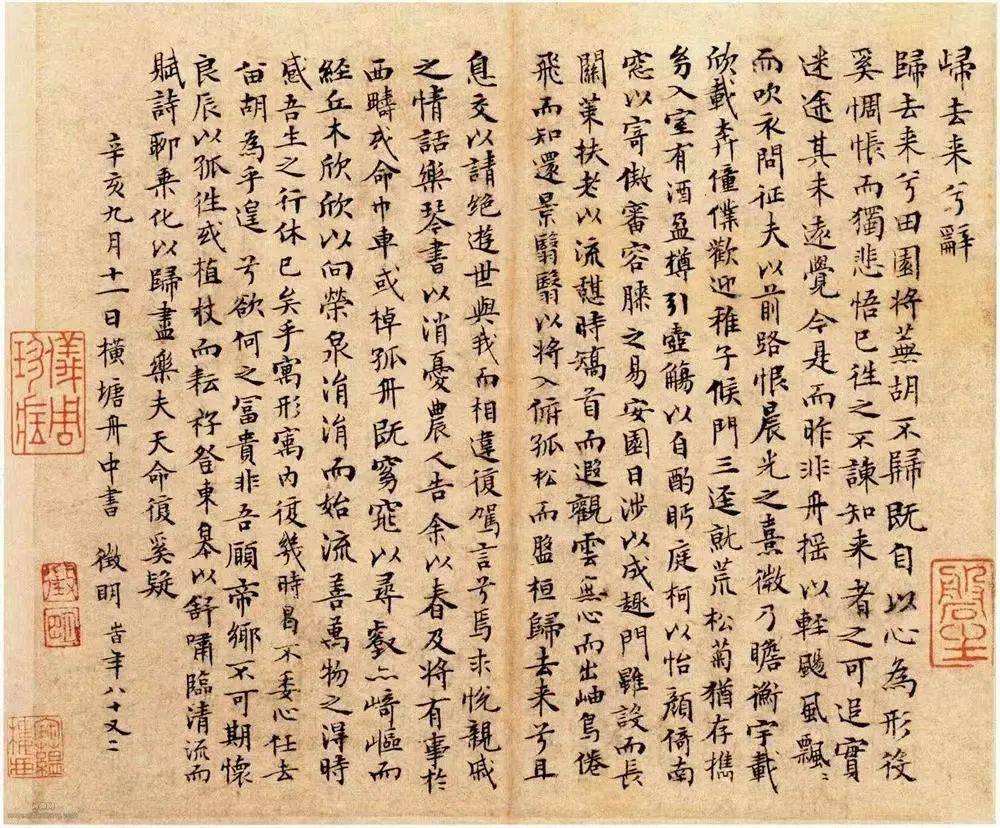 歸去来兮辭
歸去来兮田園将蕪胡不歸既自以心為形役
奚惆悵而獨悲悟已徃之不諫知来者之可追實
迷途其未遠覺今是而昨非舟摇以輊颺風飄〻
而吹衣問征夫以前路恨晨光之熹微乃瞻衡宇載
欣載奔僮僕歡迎稚子候門三逕就荒松菊猶存携
幼入室有酒盈樽引壺觴以自酌眄庭柯以怡顔倚南
窓以寄傲審容膝之易安園日涉以成趣門雖設而長
關策扶老以流憩時矯首而遐觀雲無心而出岫鳥倦
飛而知還景翳翳以将入俯孤松而盤桓歸去来兮且
息交以請絶遊世與我而相違復駕言兮焉求悦親戚
之情話樂琴書以消憂農人告余以春及将有事於
西疇或命巾車或棹孤舟既窈窕以尋壑亦崎嶇而
經丘木欣欣以向榮泉涓涓而始流善萬物之得時
感吾生之行休已矣乎寓形寓内復幾時曷不委心任去
留胡為乎遑兮欲何之冨貴非吾願帝鄉不可期懷
良辰以孤徃或植杖而耘耔登東皋以舒嘯臨清流而
賦詩聊乘化以歸盡樂夫天命復奚疑
辛亥九月十一日横塘舟中書 徵明 時年八十又二
儀周珍藏
徵明